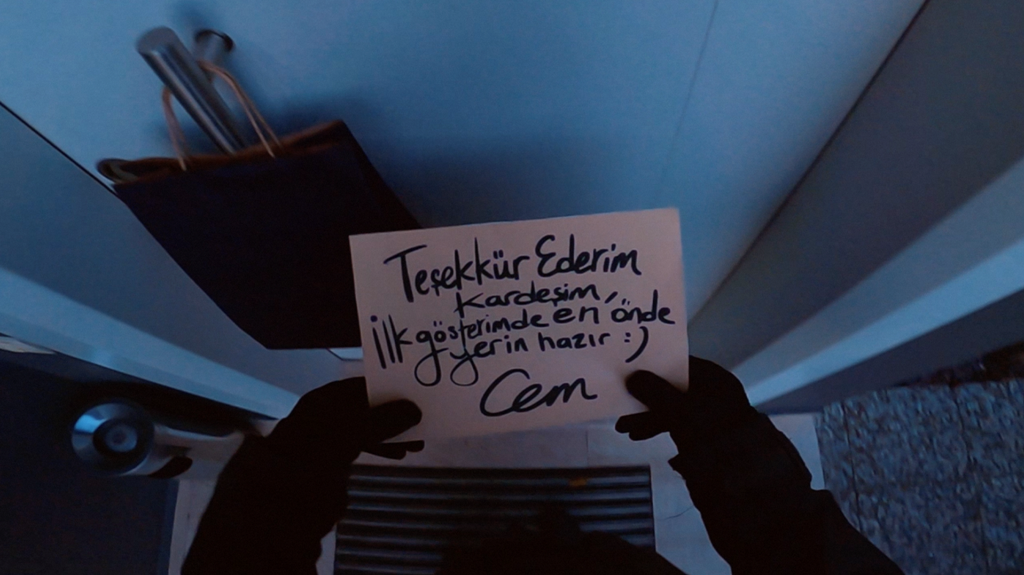 Teşekkür Ederim
Kardeşim,
İlk gösterimde en önde
yerin hazır :)
Cem